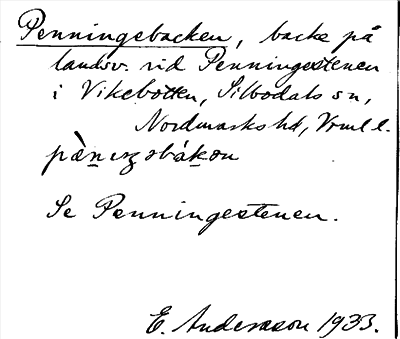 Penningebacken, backe på
landsv. vid Penningestenen
i Vikebotten, Silbodals sn,
Nordmarks hd, Vrml l.
Se Penningestenen.
E. Andersson 1933.